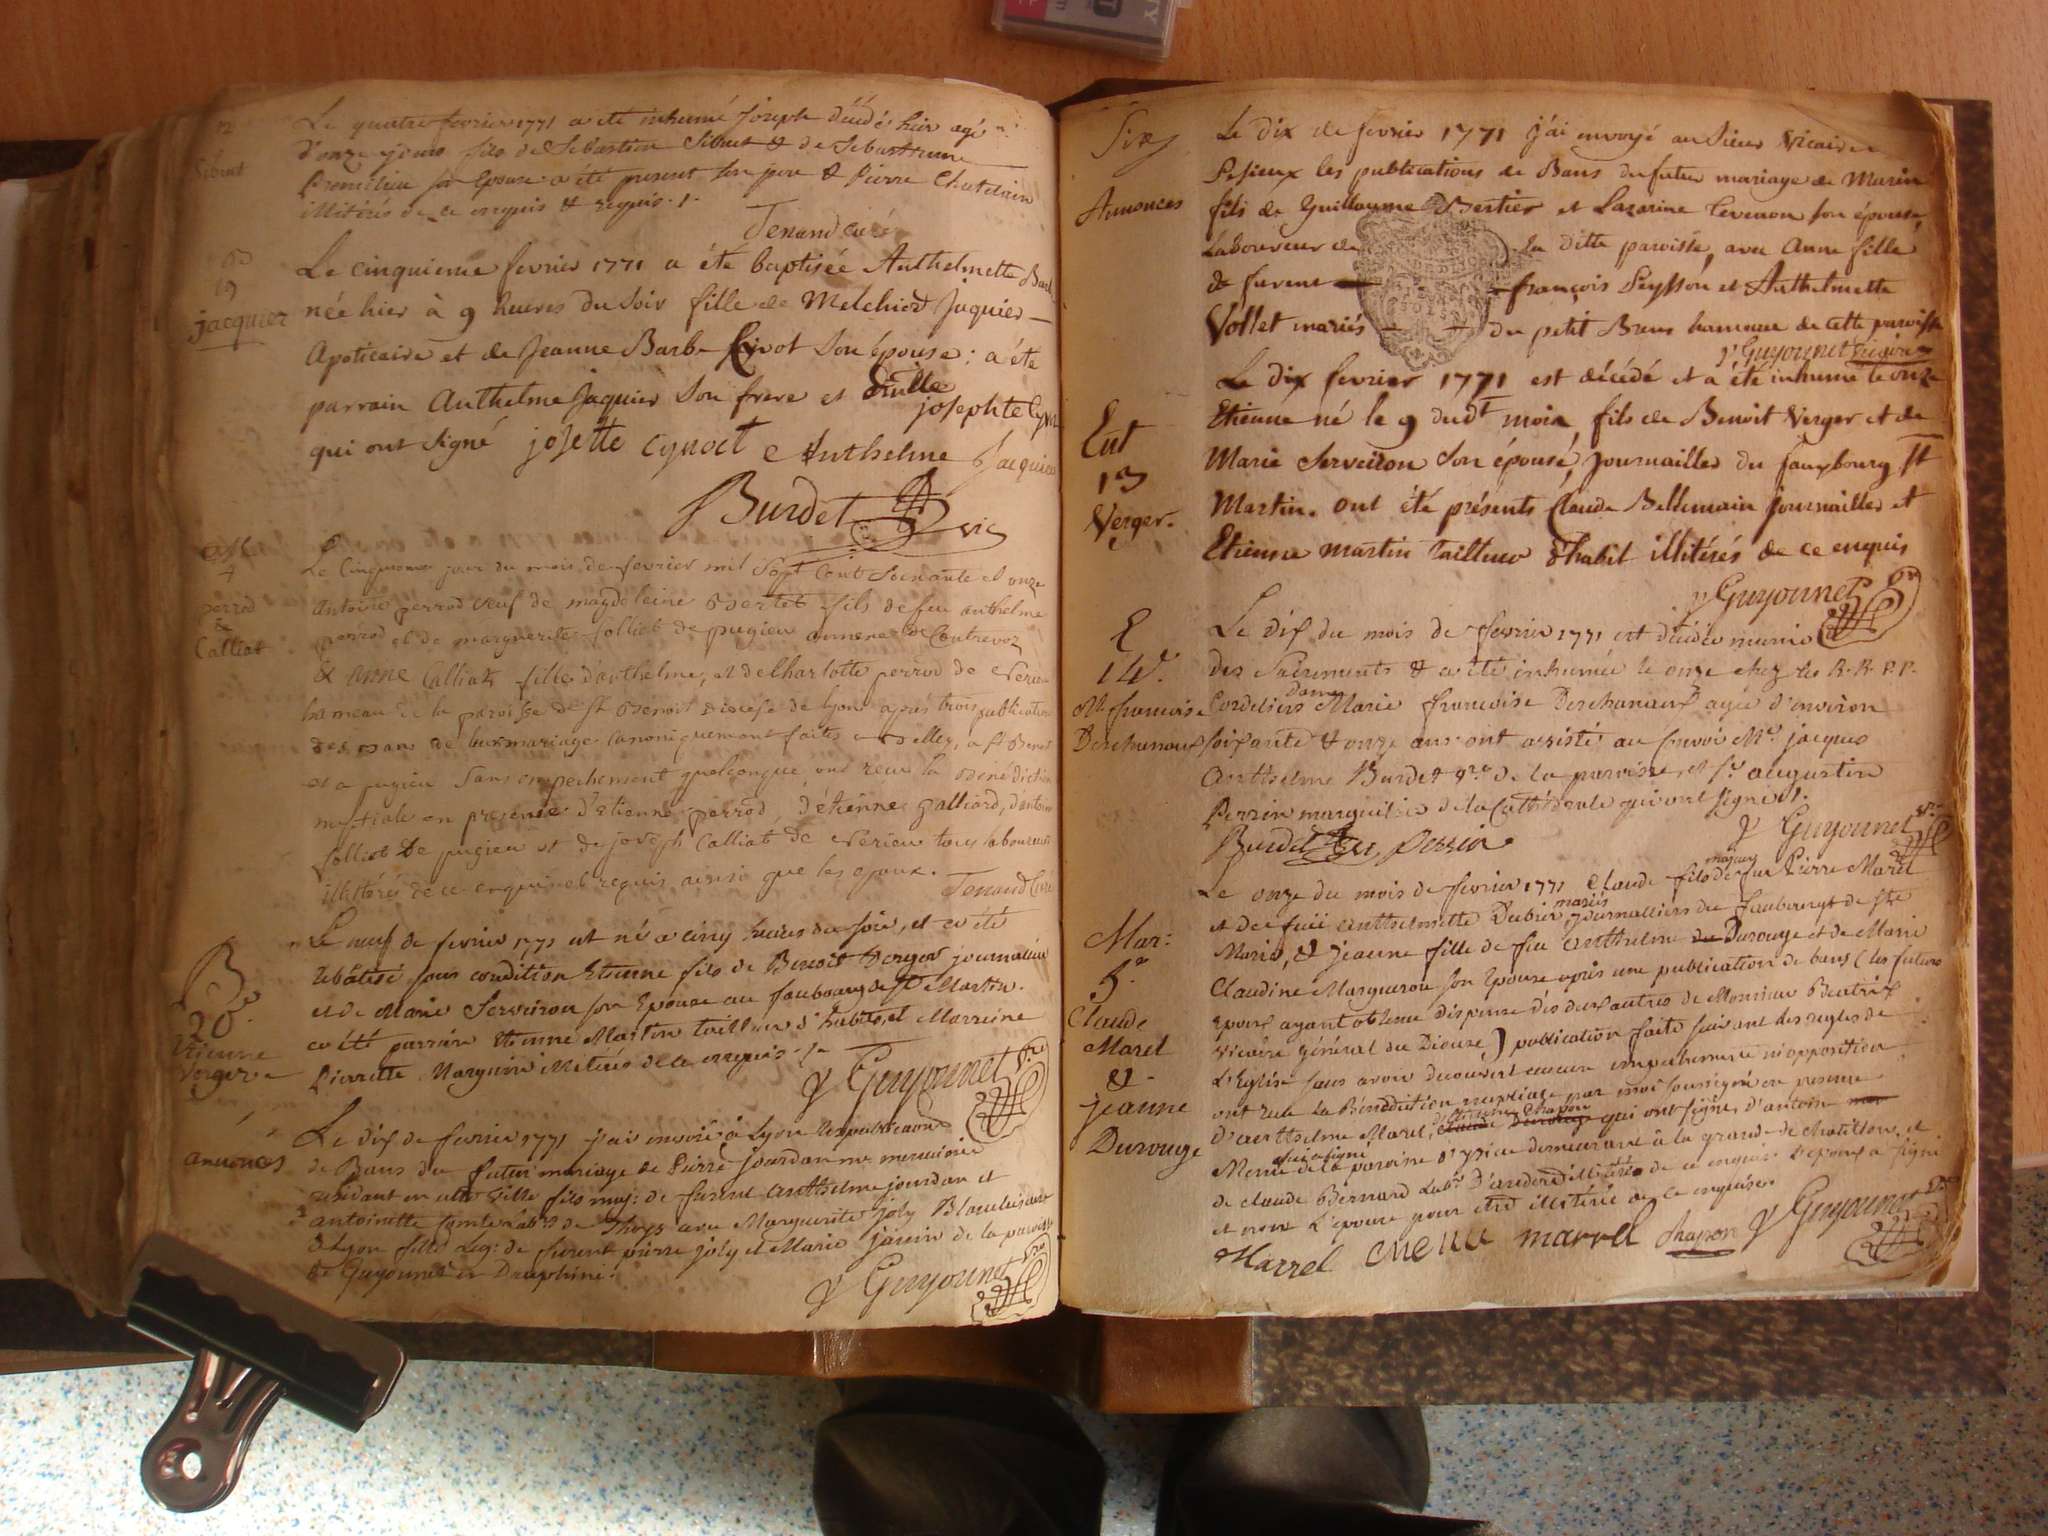 12
Sibuet
Le quatre fevrier 1771 a été inhumé Joseph décédé hier agé
d'onze jours fils de Sebastien Sibuet & de Sebastienne
son Epouse a été present son pere & Pierre Chatelain
illitérés de ce enquis & requis
Tenand curé
B
19
jacquier
Le cinquieme fevrier 1771 a été baptisée Anthelmette Barbe
née hier à 9 heures du soir fille de Melchiord Jaquier
Apoticaire et de Jeanne Barbe son épouse : a été
parrain Anthelme Jaquier son frere et
josephte
qui ont signé josette cynoct Anthelme Jacquier
Burdet vic
4
perrod
&
Calliat
Le Cinquieme jour du mois de fevrier mil Sept Cent Soixante et onze
antoine perrod veuf de magdeleine Bertet fils de feu anthelme
perrod et de marguerite folliet de pugieu annexe de Contrevoz
& anne Calliat fille d'anthelme, et de Charlotte perrod de
hameau de la paroisse de St Benoit diocese de lyon après trois publications
des bans de leur mariage Canoniquement faites a Belley, a St Benoit
et a pugieu sans empechement quelconque, ont reçu la Benediction
nuptiale en presence d'Etienne perrod, d'étienne galliard, d'antoine
folliet de pugieu et de joseph Calliat de tous laboureurs
illitérés de ce enquis et requis ainsi que les epoux. Tenand Curé
B
20
Etienne
Verger
Le neuf de fevrier 1771 est né a cinq heures du soir, et a été
rebâtisé sous condition Etienne fils de Benoit Verger journalier
et de Marie Serveiron son Epouse au faubourg de St Martin.
a été parrain Etienne Martin tailleur d'habits, et Marreine
Pierrette illitérés de ce enquis
Guyonnet
annonces
Le dix de fevrier 1771 j'ai envoié à Lyon les publications
de Bans du futur mariage de Pierre jourdan me menuisier
residant en cette ville fils maj: de furent Anthelme jourdan et
antoinette de Thoys avec Marguerite joly
à Lyon fille leg: de furent pierre joly et Marie de la paroisse
de en Dauphiné.
Guyonnet
Six
Annonces
Le dix de fevrier 1771 j'ai envoyé au Sieur Vicaire
les publications de Bans du futur mariage de Marin
fils de Guillaume Bertier et Lazarine son épouse,
Laboureur de la ditte paroisse, avec Anne fille
de furent françois Peysson et Anthelmette
Vollet mariés du petit Brens hameau de cette paroisse
Guyonnet vicaire
Ent
13
Verger.
Le dix fevrier 1771 est décédé et a été inhumé le onze
Etienne né le 9 dudt mois, fils de Benoit Verger et de
Marie Serveiron son épouse, journailler du fauxbourg St
Martin. ont été présents Claude Beldemain journailler et
Etienne martin tailleur d'habit illitérés de ce enquis
Guyonnet
E
14e
Me francoise
Deschanaux
Le dix du mois de fevrier 1771 est décédée munie
des Sacrements & a été inhumée le onze chez les R.R. P.P.
Cordeliers Dame Marie francoise Deschanaux agée d'environ
soixante & onze ans ont assisté au convoi Mr. jacques
Anthelme Burdet de la paroisse, et Sr augustin
Perrin marguillier de la Cathédrale qui ont signé
Burdet Perrin Guyonnet
Mar:
5e
Claude
Marel
&
jeanne
Durouge
Le onze du mois de fevrier 1771 Claude fils majeur de feu Pierre Marel
et de feüe Anthelmette Dubier mariés, journalliers du faubourgt de Ste
Marie, & jeanne fille de feu Anthelme Durouge et de Marie
Claudine Margueron son Epouse après une publication de bans (les futurs
Epoux ayant obtenu dispense des deux autres de Monsieur Beatrix
vicaire général du Diocese) publication faite suivant les regles de
L'Eglise sans avoir découvert aucun empechement ni opposition
ont reçu la Bénédiction nuptiale par moi soussigné en presence
d'anthelme Marel, étienne Chapon qui ont signé, d'antoine
de la paroisse d' demeurant à la grande de chatillon, et
de claude Bernard Labr illitérés de ce enquis L'epoux a signé
et non L'epouse pour être illitérée de ce enquise
Marrel marrel chapon Guyonnet